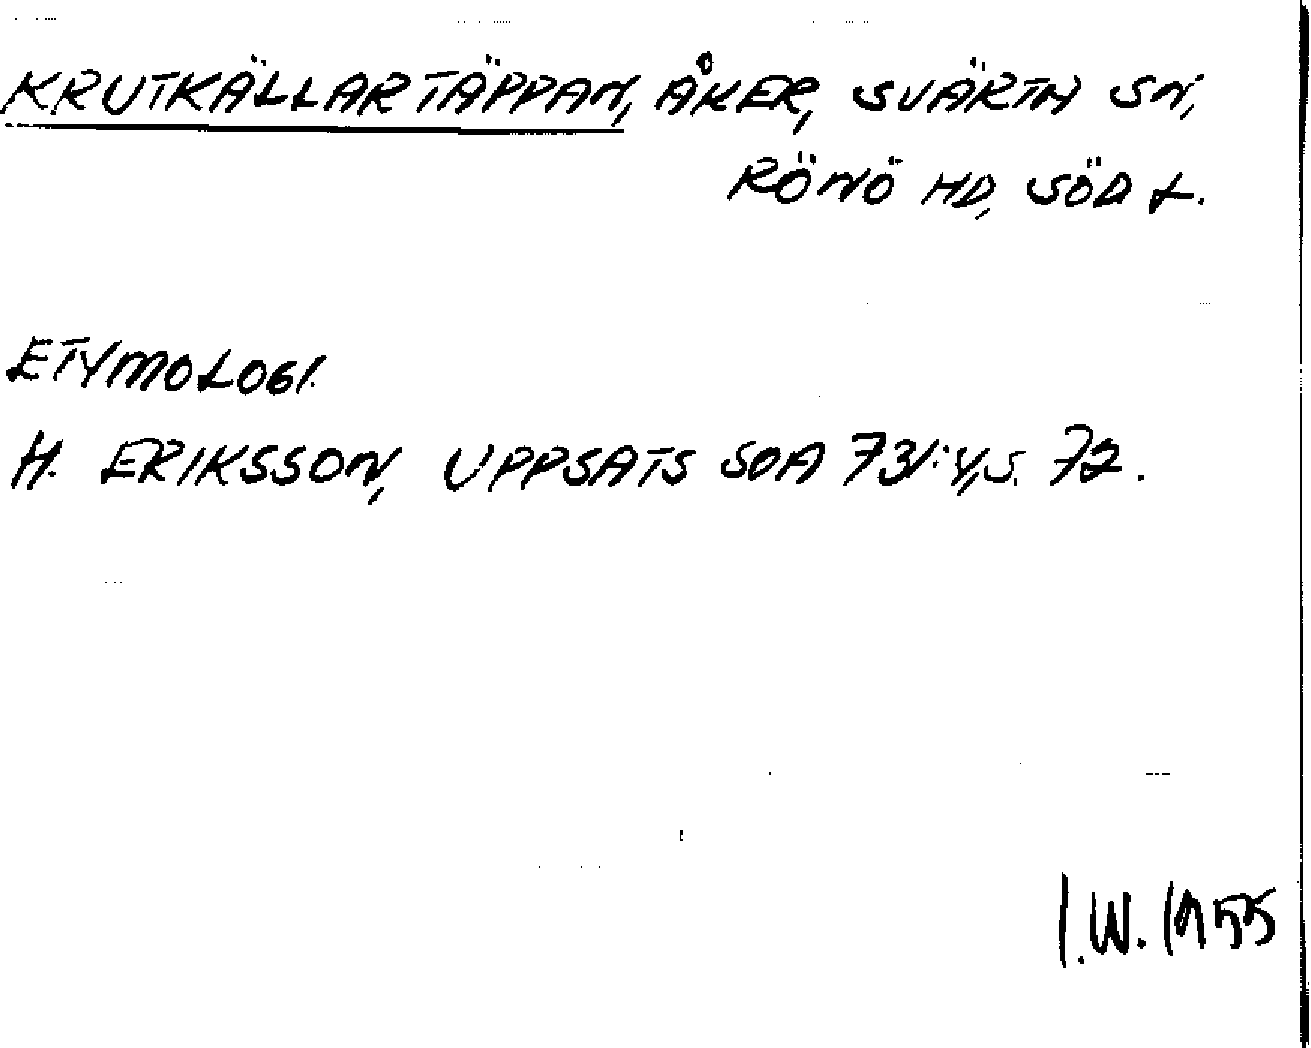 KRUTKÄLLARTÄPPAN, ÅKER, SVÄRTA SN,
RÖNÖ HD, SÖD L.
ETYMOLOGI.
H. ERIKSSON, UPPSATS SOA 731:4, S. 72.
I.W. 1955